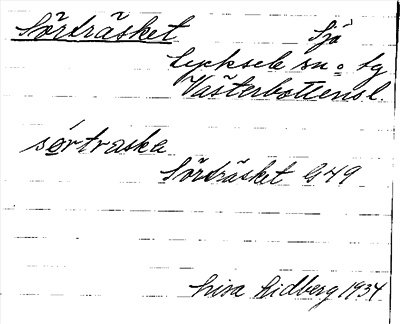 Sörträsket Sjö
Lycksele sn o. tg
Västerbottensl
sörtraska
Sörträsket G49
Lisa Lidberg 1934